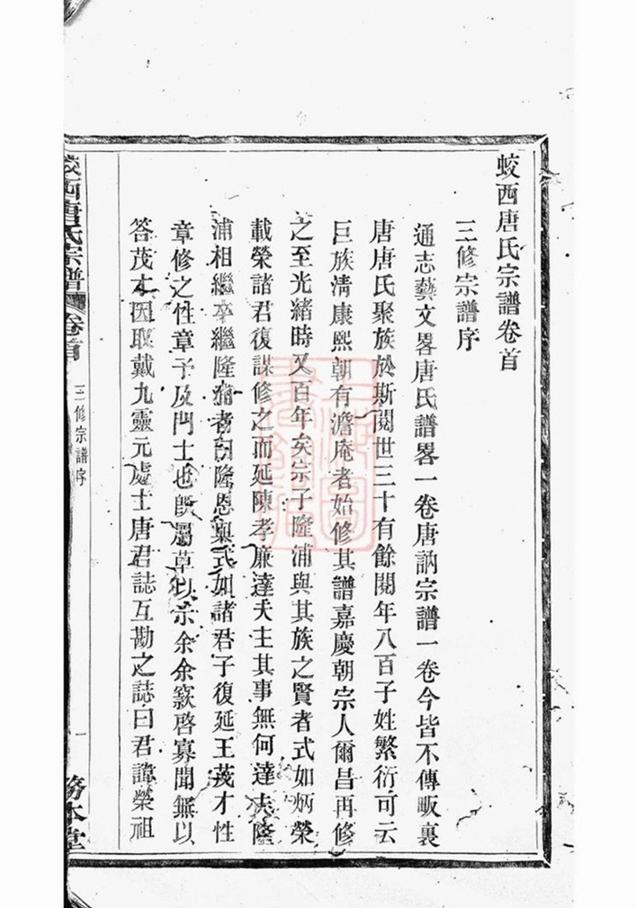 蛟西唐氏宗譜卷首
三修宗譜序
通志藝文畧唐氏譜畧一卷唐訥宗譜一卷今皆不傳畈裏
唐唐氏聚族於斯閱世三十有餘閱年八百子姓繁衍可云
巨族淸康熙朝有澹庵者始修其譜嘉慶朝宗人爾昌再修
之至光緒時又百年矣宗子隆浦與其族之賢者式如炳榮
載榮諸君復謀修之而延陳孝廉達夫主其事無何達夫隆
浦相繼卒繼隆浦者曰隆恩與式如諸君子復延王茂才性
章修之性章予及門士也旣屬草以示余余款啓寡聞無以
答茂才因取戴九靈元處士唐君誌互勘之誌曰君諱榮祖
蛟西唐氏宗譜
卷首
三修宗譜序
一
務本堂